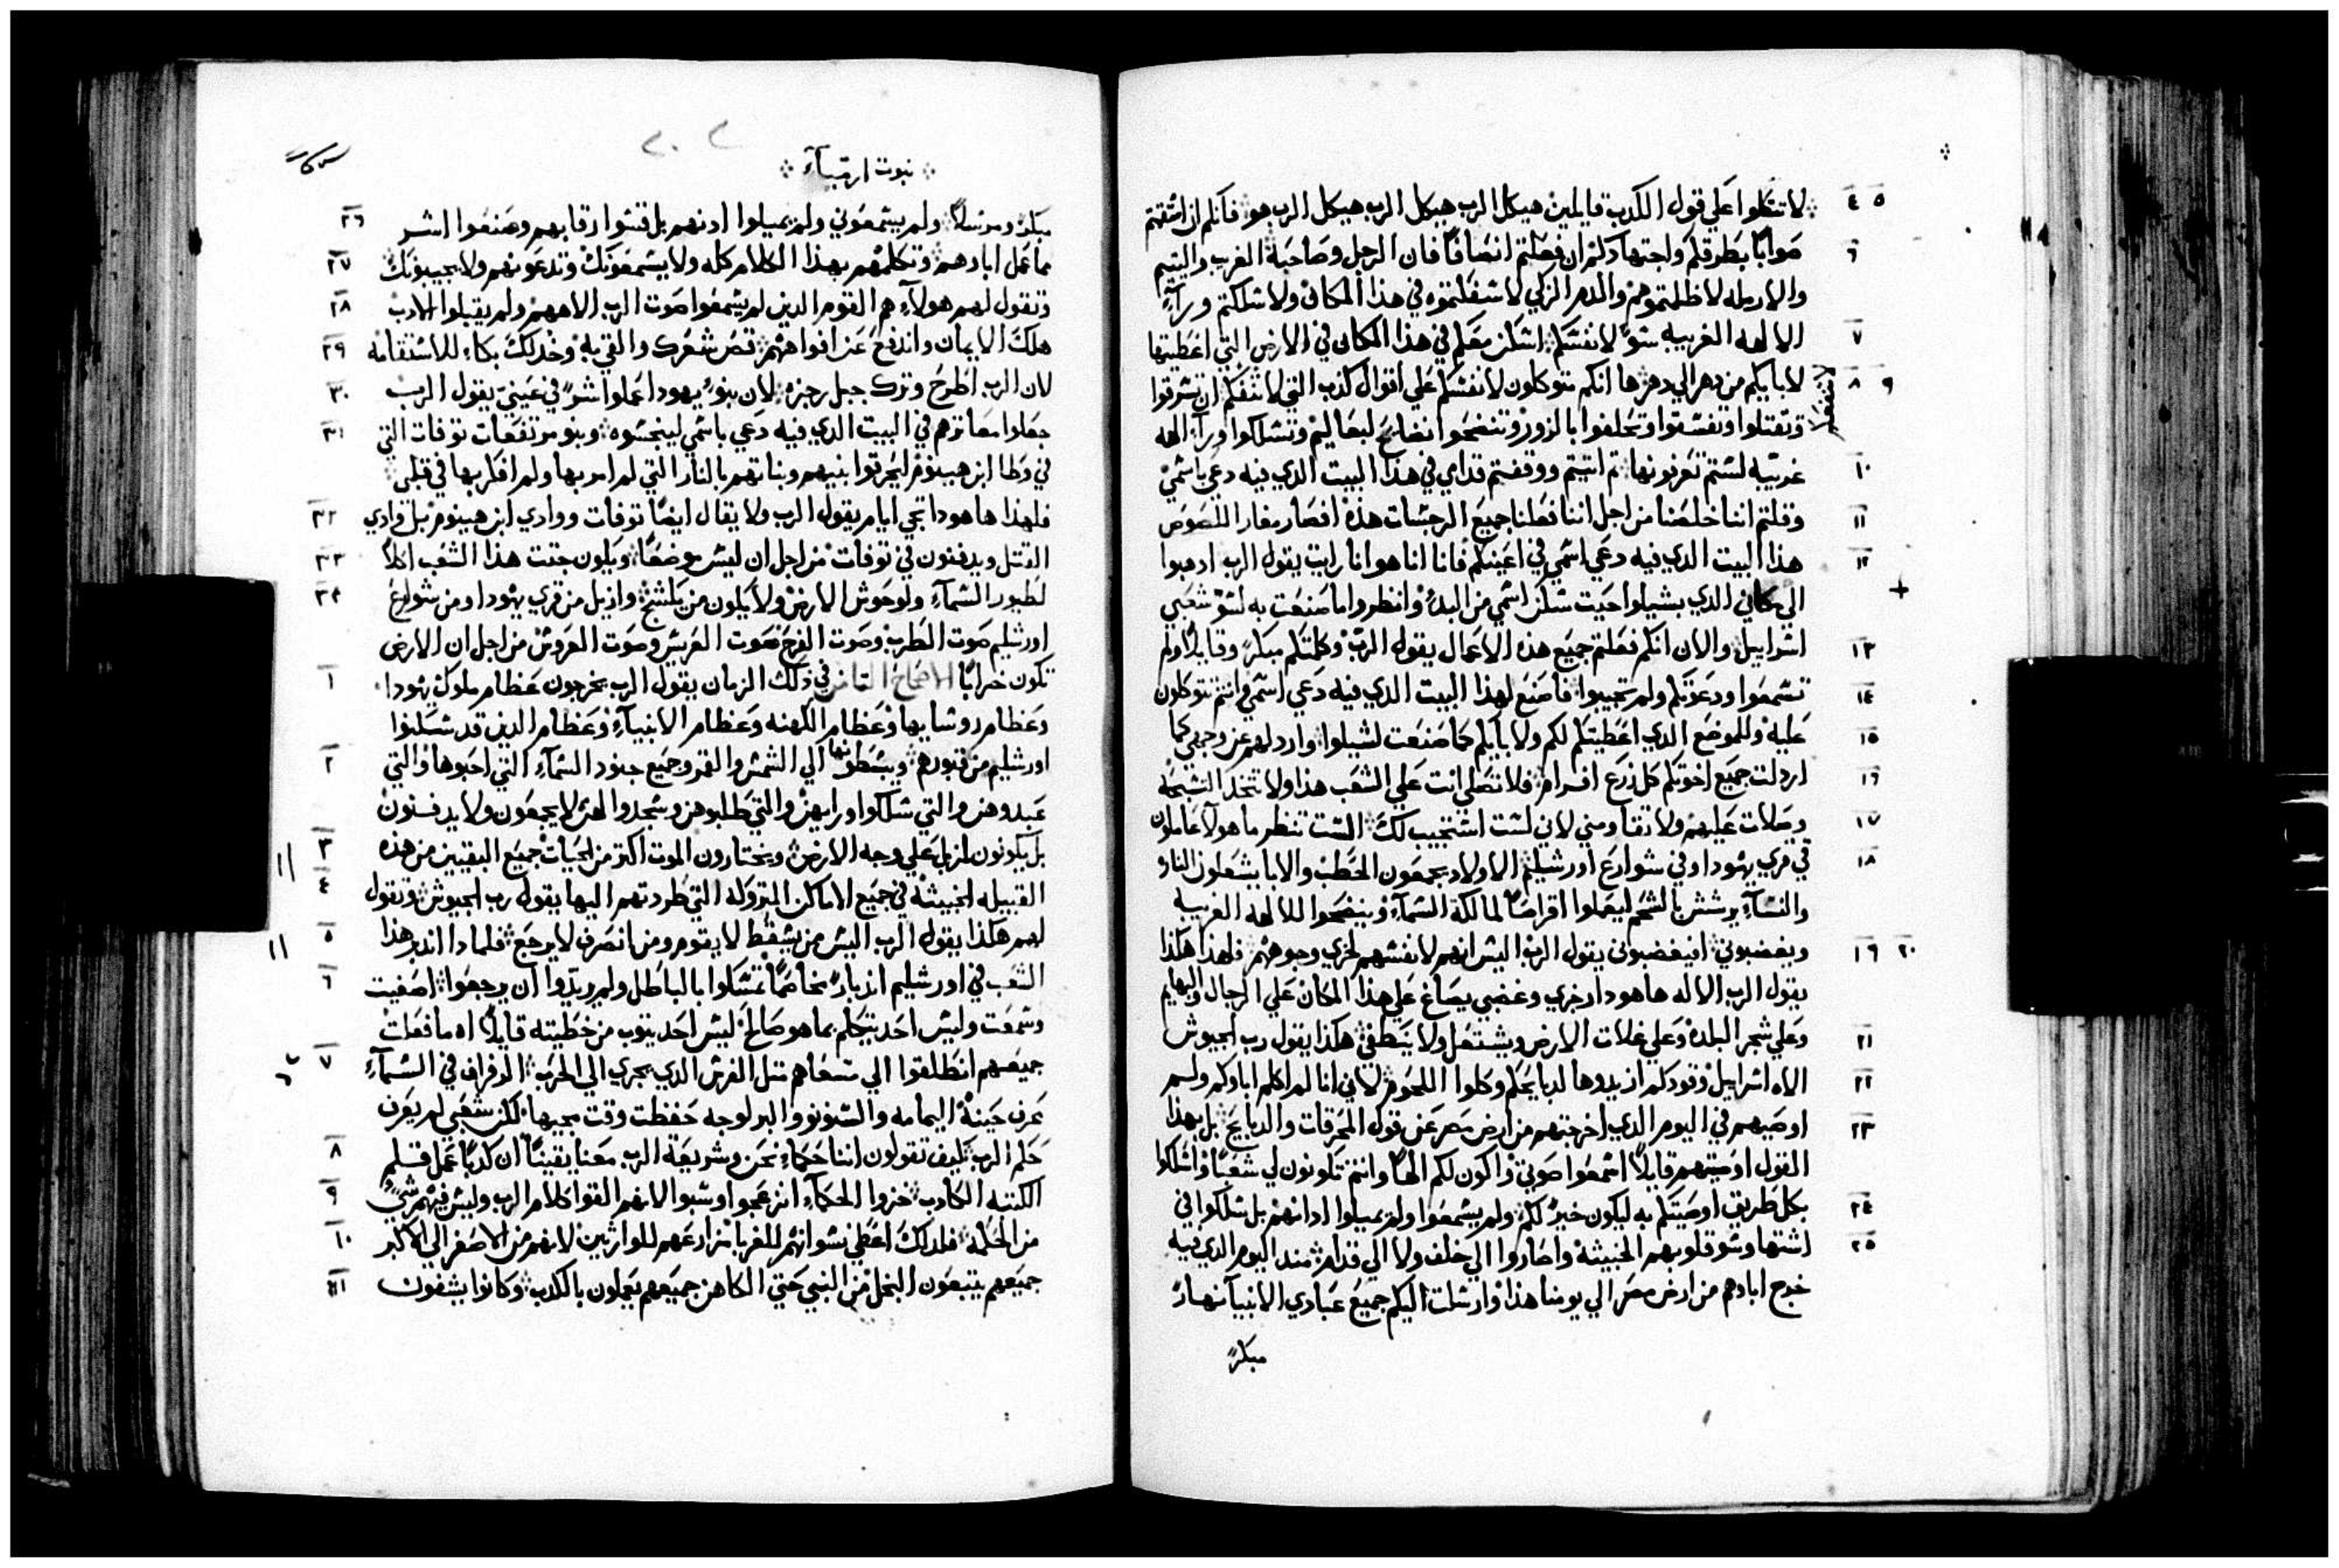 لا تتكلوا علي قول الكدب قايلين هيكل الرب هيكل الرب هيكل الرب هو فانكم ان اشقتم
٤ ٥
صوابًا بطرقكم واجتهادكم ان فعلتم انصافًا فان الرجل وصاحبة الغريب واليتيم
٦
والارمله لا ظلمتموهم والدم الزكي لا سفكتموه في هذا المكان ولا سلكتم ورآء
الالهه الغريبه سوً لانفسكم اسكن معكم في هذا المكان في الارض التي اعطيتها
٧
لابايكم من دهر الي دهر ها انكم متوكلون لانفسكم علي اقوال كذب التي لا تنفعكم ان تسرقوا
٨ ٩
وتقتلوا وتفسقوا وتحلفوا بالزور وتنضحوا نضايح لبعاليم وتسلكوا ورآ الهه
غريبه لستم تعرفونها تم اتيتم ووقفتم قدامي في هذا البيت الدي فيه دعي باسمي
١٠
وقلتم اننا خلصنا من اجل اننا فعلنا جميع الرجسات هذه افصار مغار اللصوص
١١
هذا البيت الدي فيه دعي اسمي في اعينكم فانا انا هو انا رايت يقول الرب ادهبوا
١٢
الي مكاني الدي بشيلوا حيت سكن اسمي من البدء وانظروا ما صنعت به لسوء شعبي
اسراييل والان انكم فعلتم جميع هذه الاعمال يقول الرب وكلمتكم مبكرً وقايلاً ولم
١٣
تسمعوا ودعوتكم ولم تجيبوا فاصنع لهذا البيت الدي فيه دعي اسمي وانتم تتوكلون
١٤
عليه وللموضع الدي اعطيتكم لكم ولابايكم كما صنعت لشيلوا واردلهم عن وجهي كما
١٥
اردلت جميع اخوتكم كل زرع افرام فلا تصلي انت علي الشعب هذا ولا تتخد التسبحه
١٦
وصلات عليهم ولا تقاومني لاني لست استجيب لك الست تنظر ما هولا عاملون
١٧
في قري يهودا وفي شوارع اورشليم الاولاد يجمعون الحطب والابا يشعلون النار
١٨
والنسآء يرششن بالشحم ليعملوا اقراصًا لمالكة السمآء وينضحوا للالهه الغريبه
ويغضبوني افيغضبوني يقول الرب اليس انهم لانفسهم لخزي وجوههم فلهذا هكذا
١٩ ٢٠
يقول الرب الاله ها هودا رجزي وغضبي يصاغ علي هذا المكان علي الرجال والبهايم
وعلي شجر البلده وعلي غلات الارض ويشتعل ولا ينطفي هكذا يقول رب الجيوش
٢١
الاه اسراييل وقودكم ازيدوها لدبايحكم وكلوا اللحوم لاني انا لم اكلم اباوكم ولم
٢٢
اوصيهم في اليوم الدي اخرجتهم من ارض مصر عن قول المحرقات والدبايح بل بهذا
٢٣
القول اوصيتهم قايلاً اسمعوا صوتي واكون لكم الهًا وانتم تكونون لي شعبًا واسلكوا
بكل طريق اوصيتكم به ليكون خيرً لكم ولم يسمعوا ولم يميلوا ادانهم بل سلكوا في
٢٤
اشتها وسو قلوبهم الخبيثه وصاروا الي خلف ولا الي قدام مند اليوم الدي فيه
٢٥
خرج اباوهم من ارض مصر الي يومنا هذا وارسلت اليكم جميع عبادي الانبيآ نهارً
مبكرً
نبوت ارميآء
مبكرً ومرسلاً ولم يسمعوني ولم يميلوا ادنهم بل قسوا رقابهم وصنعوا اشر
٢٦
مما عمل اباوهم وتكلمهم بهذا الكلام كله ولا يسمعونك وتدعوهم ولا يجيبونك
٢٧
وتقول لهم هولاء هم القوم الدين لم يسمعوا صوت الرب الاههم ولم يقبلوا الادب
٢٨
هلك الايمان واندفع عن افواههم قص شعرك والقي به وخد لك بكاء للاستقامه
٢٩
لان الرب اطرح وترك جبل رجزه لان بنو يهودا عملوا الشر في عيني يقول الرب
٣٠
جعلوا معاترهم في البيت الدي فيه دعي باسمي لينجسوه وبنو مرتفعات توفات التي
٣١
في وطا ابن هينوم ليحرقوا بنيهم وبناتهم بالنار التي لم امر بها ولم افكر بها في قلبي
فلهذا ها هودا تجي ايام يقول الرب ولا يقال ايضًا توفات ووادي ابن هينوم بل وادي
٣٢
القتل ويدفنون في توفات من اجل ان ليس موضعًا ويكون جتت هذا الشعب اكلاً
٣٣
لطيور السمآء ولوحوش الارض ولا يكون من يكشح وازيل من قري يهودا ومن شوارع
٣٤
اورشليم صوت الطرب وصوت الفرح صوت العريس وصوت العروس من اجل ان الارض
تكون خرابًا الاصحاح التامن في ذلك الزمان يقول الرب يخرجون عظام ملوك يهودا
١
وعظام روسايها وعظام الكهنه وعظام الانبيآء وعظام الدين قد سكنوا
اورشليم من قبورهم ويبسطونها الي الشمس والقمر وجميع جنود السمآء التي احبوها والتي
٢
عبدوهن والتي سلكوا ورايهن والتي طلبوهن وسجدوا لهن لا يجمعون ولا يدفنون
بل يكونون لزبل علي وجه الارض ويختارون الموت اكتر من الحيات جميع البقيين من هذه
٣
القبيله الخبيثه في جميع الاماكن المتروكه التي طردتهم اليها يقول رب الجيوش وتقول
٤
لهم هكذا يقول الرب اليس من يسقط لا يقوم ومن انصرف لا يرجع فلمادا اندبر هذا
٥
الشعب في اورشليم اندبارً مخاصمًا تمسكوا بالباطل ولم يريدوا ان يرجعوا اصغيت
٦
وسمعت وليس احد يتكلم بما هو صالح ليس احد يتوب من خطيته قايلاً اه ما فعلت
جميعهم انطلقوا الي مسعاهم متل الفرس الدي يجري الي الحرب في السمآء
٧
عرف حينهُ اليمامه والسنونو والبرلوجه حفظت وقت مجيها لكن شعبي لم يعرف
حكم الرب كيف تقولون اننا حكماء نحن وشريعة الرب معنا يقينًا ان كدبًا عمل قلم
٨
الكتبه الكادب خزوا الحكمآء انزعجوا وسبوا لانهم القوا كلام الرب وليس فيهم شيء
٩
من الحكمه فلدلك اعطي نسوانهم للغربا مزارعهم للوارتين لانهم من الاصغر الي الاكبر
١٠
جميعهم يتبعون البخل من النبي حتي الكاهن جميعهم يعملون بالكدب وكانوا يشفون
١١